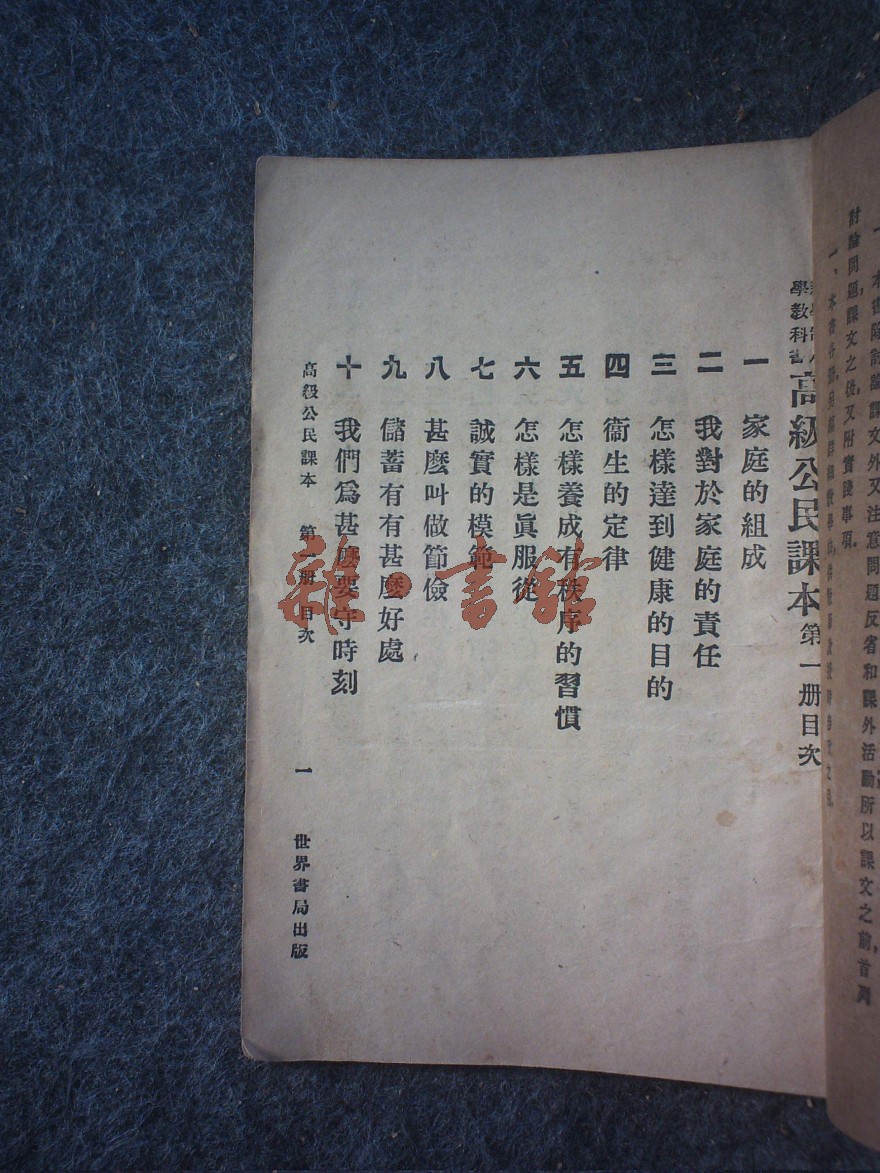 一、本書除討論課文外又注意問題反省和課外活動所以課文之前，首列
討論問題，課文之後，又附實踐事項。
學教科書
高級公民課本第一册目次
一 家庭的組成
二 我對於家庭的責任
三 怎樣達到健康的目的
四 衞生的定律
五 怎樣養成有秩序的習慣
六 怎樣是眞服從
七 誠實的模範
八 甚麽叫做節儉
九 儲蓄有有甚麽好處
十 我們爲甚麽要守時刻
高級公民課本 第一册 目次 一 世界書局出版
雜·書館